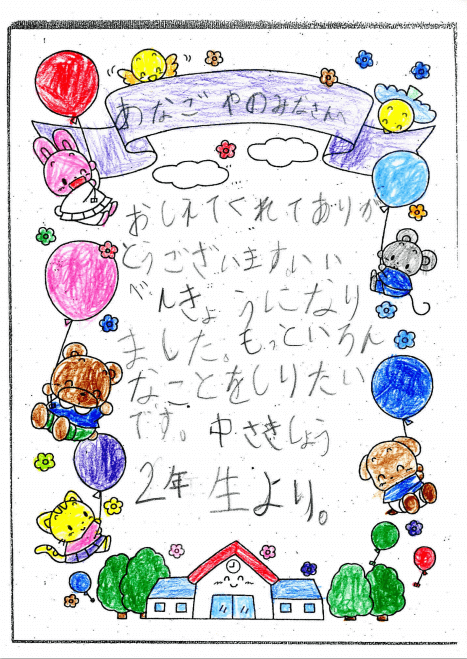 あなごやのみなさんへ
おしえてくれてありが
とうございます。いい
べんきょうになり
ました。もっといろん
なことをしりたい
です。中さきしょう
2年生より。